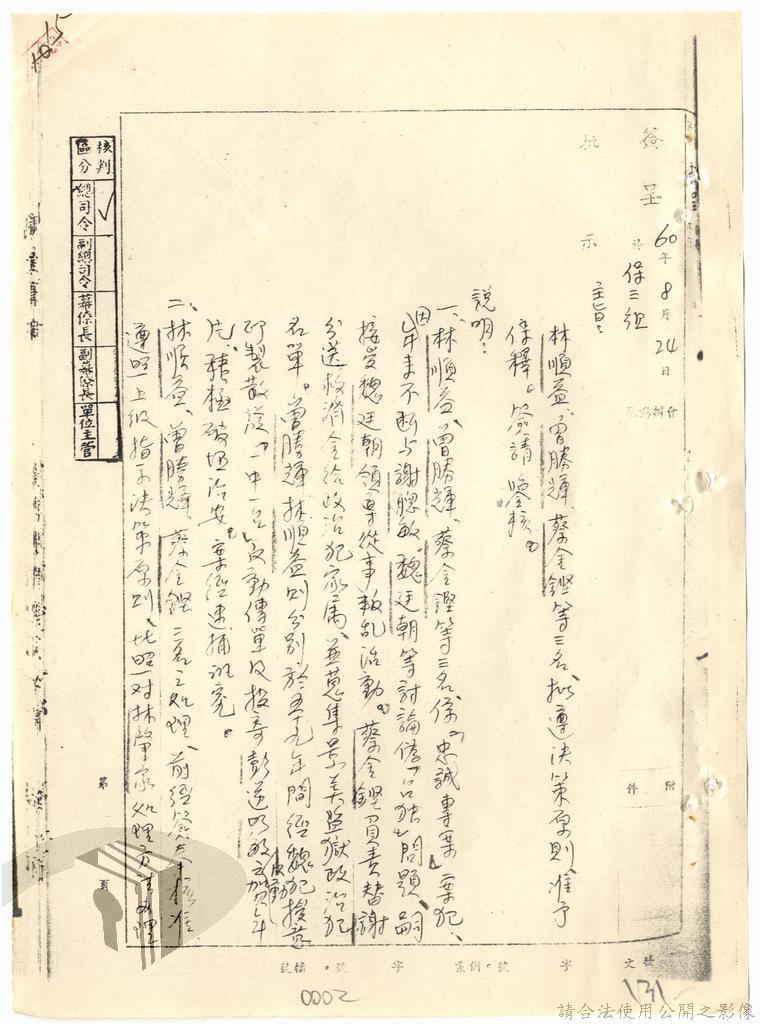 簽呈
批示
60年8月24日
於保三組
主旨：
林順益、曾勝輝、蔡金鏗等三名、擬遵決策原則、准予
保釋。簽請鑒核。
說明：
一、林順益、曾勝輝、蔡金鏗等三名係「忠誠專案」案犯、
因年來不斷与謝聰敏、魏廷朝等討論倩「台独」問題、嗣
接受魏廷朝領導從事叛乱活動。蔡金鏗負責替謝
分送救濟金給政治犯家屬、並蒐集景美監獄政治犯
名單。曾勝輝、林順益則分別於五十九年間經魏犯授意
印製散發「一中一台」反動傳單及投寄彭逆明敏反動賀年
片、積極破坏治安。案經逮捕訊究。
二、林順益、曾勝輝、蔡金鏗三名之処理、前經簽奉核准
遵照上級指示決策原則、比照對林肇家処理方式办理
核判區分
總司令
副總司令
幕僚長
副幕僚長
單位主管
附件
第頁
收文 字 號
案例 號 字 號 檔號
131
0002
請合法使用公開之影像